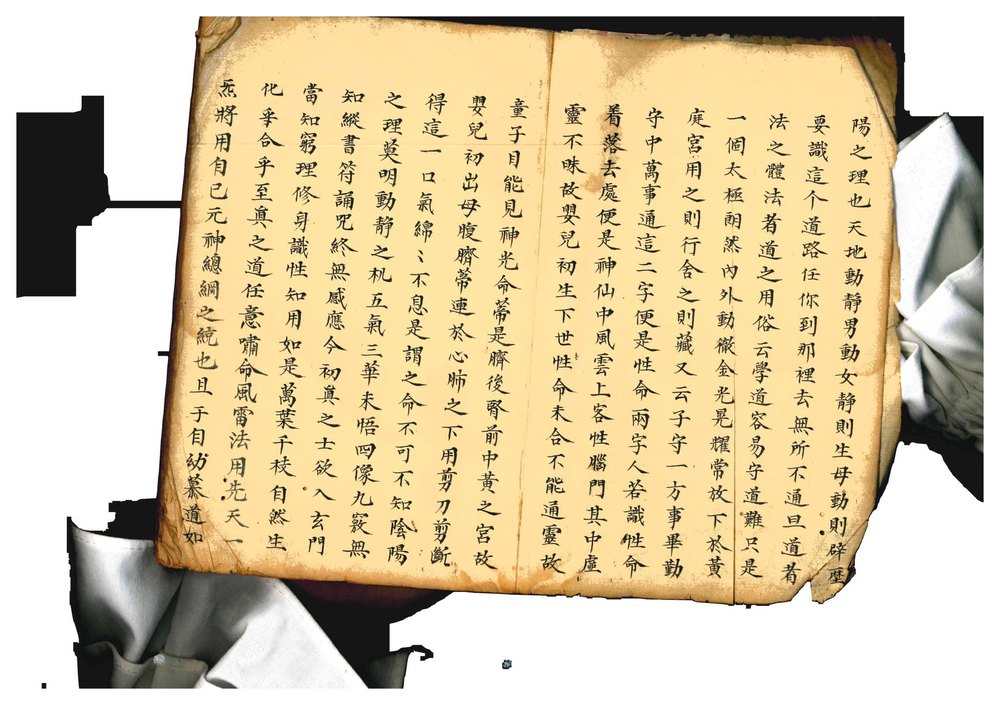 陽之理也天地動靜男動女靜則生母動則辟歷
要識這个道路任你到那裡去無所不通旦道者
法之體法者道之用俗云學道容易守道難只是
一個太極朗然內外動徹金光晃耀常放下於黃
庭宮用之則行舍之則藏又云子守一方事畢勤
守中萬事通這二字便是性命兩字人若識性命
着落去處便是神仙中風雲上客性腦門其中虛
靈不昧故嬰兒初生下世性命未合不能通靈故
童子目能見神光命蒂是臍後腎前中黃之宮故
嬰兒初出母腹臍蒂連於心肺之下用剪刀剪斷
得這一口氣綿〻不息是謂之命不可不知陰陽
之理莫明動靜之机五氣三華未悟四像九竅無
知縱書符誦咒終無感應今初真之士欲入玄門
當知窮理修身識性知用如是萬葉千枝自然生
化乎合乎至真之道任意嘯命風雷法用先天一
炁將用自己元神總綱之統也且于自幼慕道如